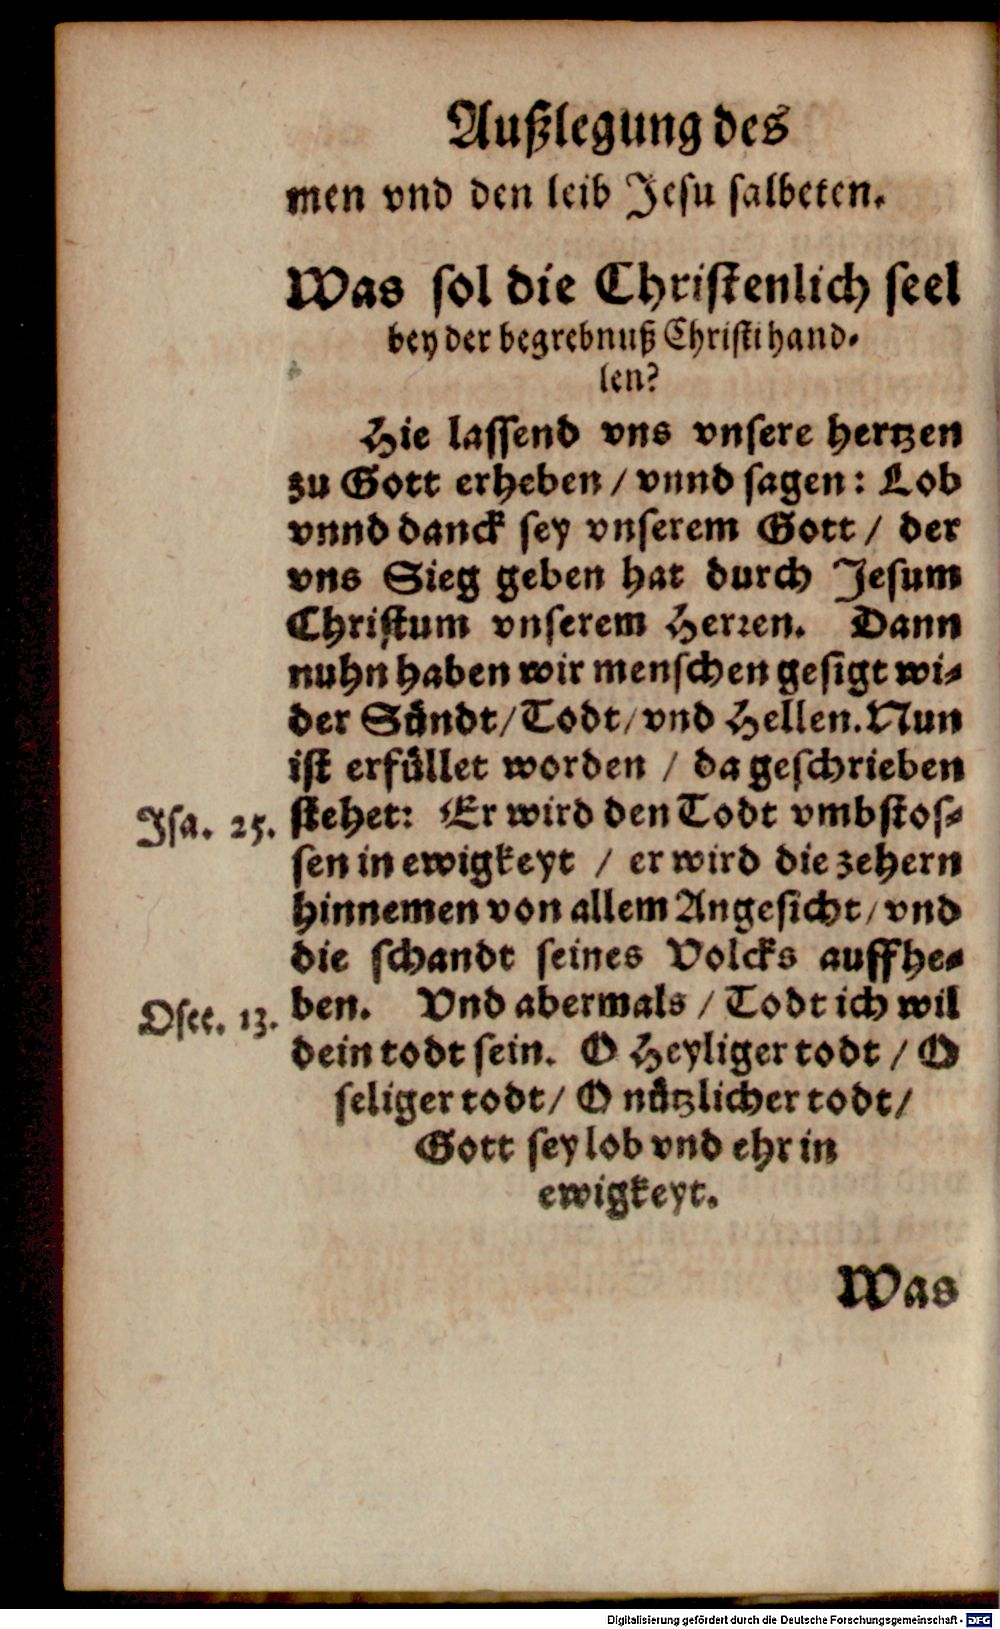 Außlegung des
men vnd den leib Jesu salbeten.
Was sol die Christenlich seel
bey der begrebnuß Christi hand-
len?
Hie lassend vns vnsere hertzen
zu Gott erheben / vnnd sagen: Lob
vnnd danck sey vnserem Gott / der
vns Sieg geben hat durch Jesum
Christum vnserem Herren. Dann
nuhn haben wir menschen gesigt wi-
der Sündt / Todt / vnd Hellen. Nun
ist erfüllet worden / da geschrieben
Isa. 25. stehet: Er wird den Todt vmbstos-
sen in ewigkeyt / er wird die zehern
hinnemen von allem Angesicht / vnd
die schandt seines Volcks auffhe-
Osee. 13. ben. Vnd abermals / Todt ich wil
dein todt sein. O Heyliger todt / O
seliger todt / O nützlicher todt /
Gott sey lob vnd ehr in
ewigkeyt.
Was
Digitalisierung gefördert durch die Deutsche Forschungsgemeinschaft - DFG